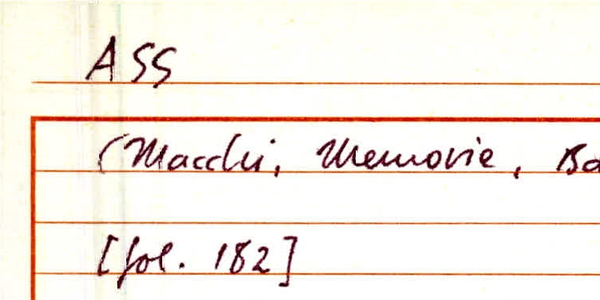 ASS
(Macchi, Memorie, Ba
[fol. 182]